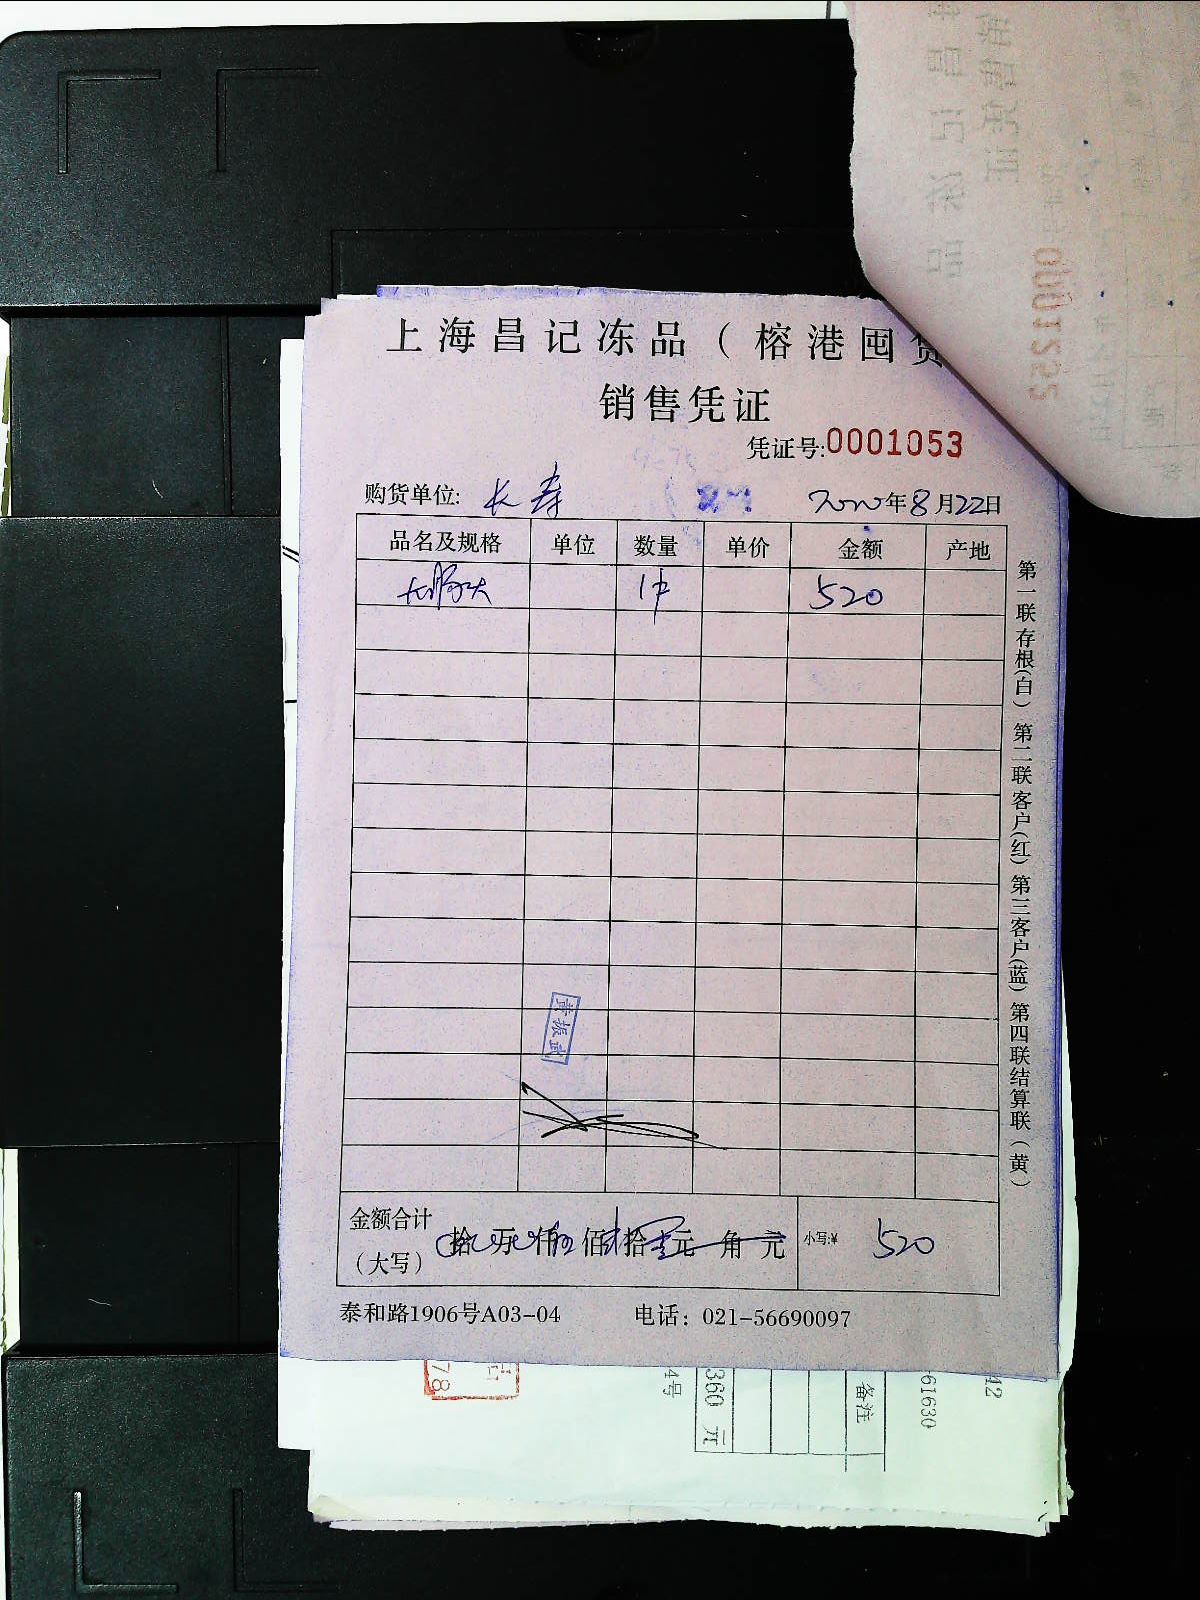 上海昌记冻品（榕港囤货
销售凭证
凭证号:0001053
购货单位: 长寿 2020年8月22日
品名及规格 单位 数量 单价 金额 产地
1件 520
第一联存根(白) 第二联客户(红) 第三客户(蓝) 第四联结算联(黄)
黄振武
金额合计
（大写） 拾 万 仟 佰 拾 元 角 元 小写:¥ 520
泰和路1906号A03-04 电话：021-56690097
78
4号
360 元
备注
61630
42
0001252